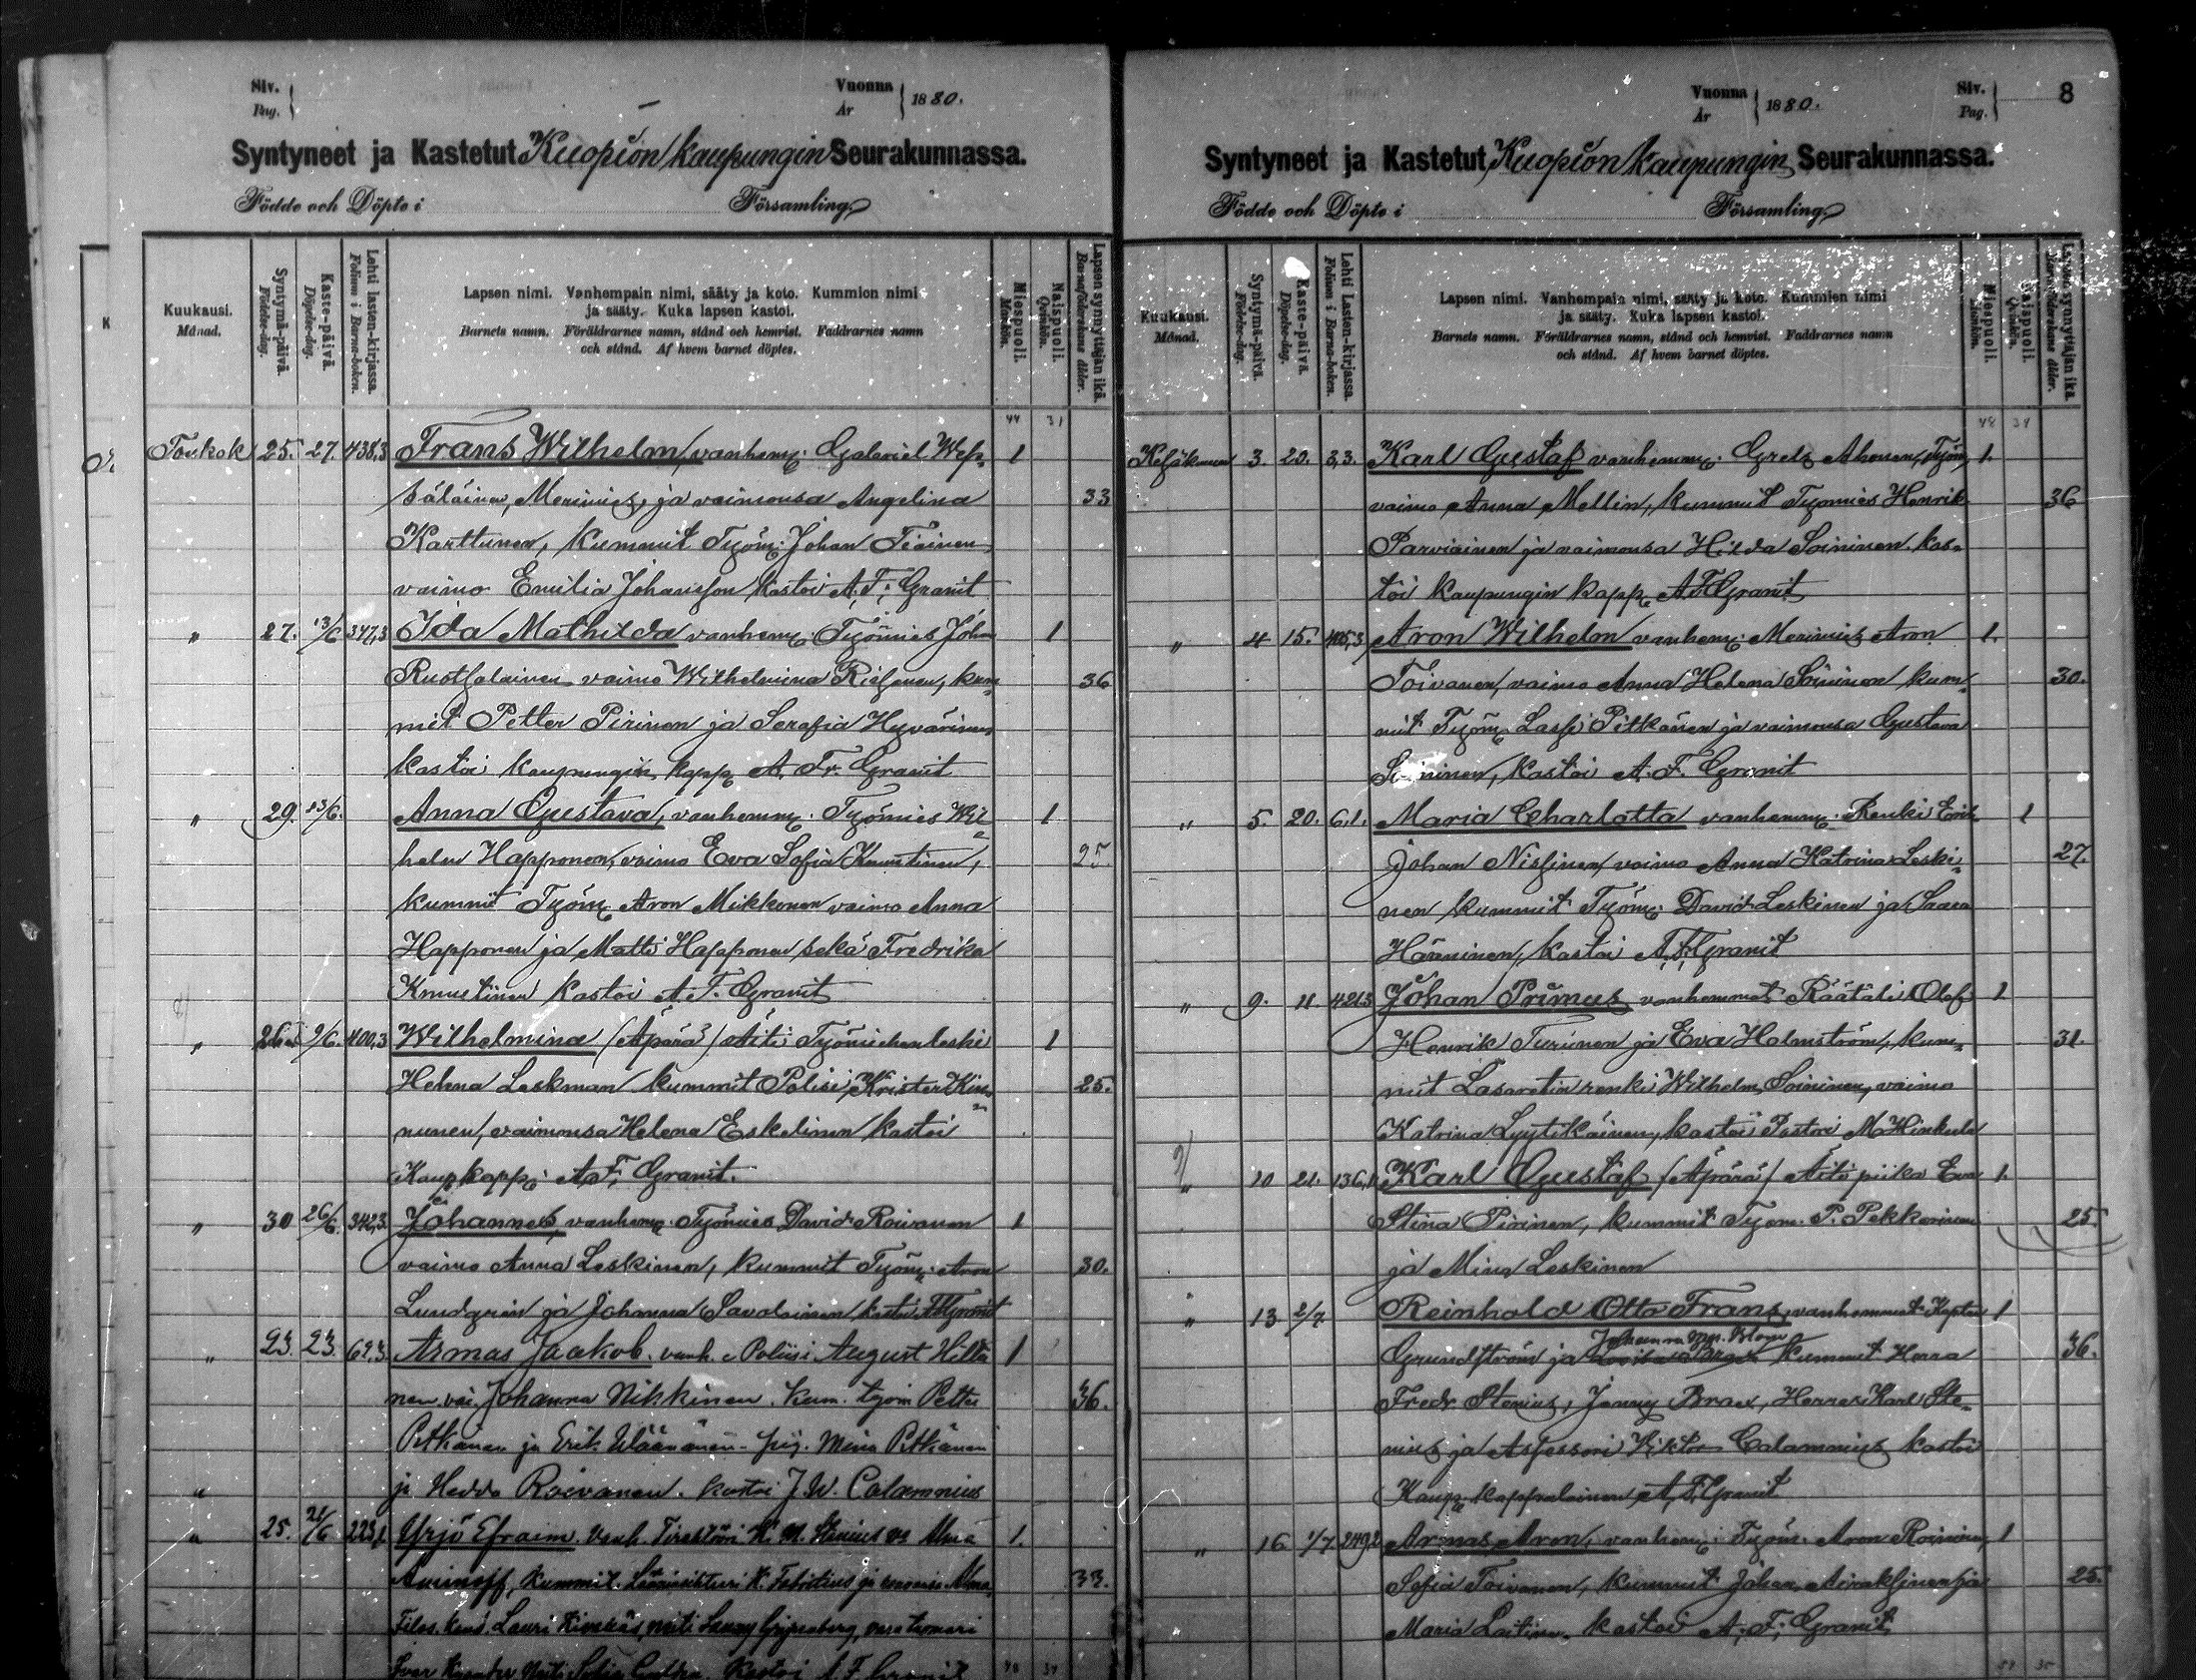 Siv.
Pag.
Vuonna
År
1880.
Syntyneet ja Kastetut Kuopion kaupungin Seurakunnassa.
Födde och Döpte i Församling
Kuukausi.
Månad.
Syntymä-päivä.
Födelse-dag.
Kaste-päivä.
Döpelse-dag.
Lehti lasten-kirjassa.
Folium i Barna-boken.
Lapsen nimi. Vanhempain nimi, sääty ja koto. Kummion nimi
ja sääty. Kuka lapsen kastoi.
Barnets namn. Föräldrarnes namn, stånd och hemvist. Faddrarnes namn
och stånd. Af hvem barnet döptes.
Miespuoli.
Mankön.
Naispuoli.
Qvinkön.
Lapsen synnyttäjän ikä.
Barnaföderskans ålder.
44 31
Toukok 25. 27. 438,3 Frans Wilhelm, vanhem: Gabriel Wep- 1
säläinen, Merimies, ja vaimonsa Angelina 33
Karttunen, Kummit Työm: Johan Tiainen,
vaimo Emilia Johansson kastoi A. F. Granit
" 27. 13/6 347,3 Ida Mathilda vanhem: Työmies Joh: 1
vaimo Wilhelmina kum- 36
mit Petter Pirinen ja Serafia Hyvärinen
kastoi kaupungin kapp. A. Fr. Granit
" 29. 13/6. Anna Gustava, vanhemm: Työmies Wil- 1
helm Happonen, vaimo Eva Sofia Knuutinen, 25.
kummit Työm: Aron Mikkonen vaimo Anna
Happonen ja Matti Happonen sekä Fredrika
Knuutinen kastoi A. F. Granit
" 26 9/6. 400,3 Wilhelmina (Äpärä) Äiti Työmiehen leski 1
Helena Leskman kummit Polisi Krister Kin- 25.
nunen, vaimonsa Helena Eskelinen kastoi
Kaup. kapp: A. F. Granit.
" 30 26/6. 342,3. Johannes, vanhem: Työmies David Roivanen 1
vaimo Anna Leskinen, kummit Työm: Aron 30.
Lundgren ja Johanna Savolainen kastoi A F Granit
" 23. 23. 62,3 Armas Jaakob. vanh. Poliisi August Hilti- 1
nen vai. Johanna Nikkinen. Kum. työm Petter 36.
Pitkänen ja Erik Väänänen - Mina Pitkänen
ja Hedda Roivanen. kastoi J. W. Calamnius
" 25. 21/6 223,1 Yrjö Efraim. Vanh. Tirehtöri K. M. Stenius va Alma 1.
Aminoff, Kummit. Lääninsihteri K. Fabritius ja rouvansa Alma, 33.
Filos. kand. Lauri Kivekäs, neiti varatuomari
kastoi A. F. Granit
Vuonna
År
1880.
Siv.
Pag.
8
Syntyneet ja Kastetut Kuopion kaupungin Seurakunnassa.
Födde och Döpte i Församling
Kuukausi.
Månad.
Syntymä-päivä.
Födelse-dag.
Kaste-päivä.
Döpelse-dag.
Lehti Lasten-kirjassa.
Folium i Barna-boken.
Lapsen nimi. Vanhempain nimi, sääty ja koto. Kummien nimi
ja sääty. Kuka lapsen kastoi.
Barnets namn. Föräldrarnes namn, stånd och hemvist. Faddrarnes namn
och stånd. Af hvem barnet döptes.
Miespuoli.
Mankön.
Naispuoli.
Qvinkön.
Lapsen synnyttäjän ikä.
Barnaföderskans ålder.
48 34
Kesäkuun 3. 20. 3,3. Karl Gustaf vanhemm: Grels Ahonen, Työm, 1.
vaimo Anna Mellin, kummit Työmies Henrik 36
Parviainen ja vaimonsa Hilda Soininen kas-
toi kaupungin kapp. A F Granit
" 4 15. 405,3 Aron Wilhelm vanhem: Merimies Aron 1.
Toivanen, vaimo Anna Helena Soininen kum- 30.
mit Työm. Lassi Pitkänen ja vaimonsa Gustava
Soininen, Kastoi A. F. Granit
" 5. 20. 6,1. Maria Charlotta vanhemm: Renki Erik 1
Johan Nissinen, vaimo Anna Katrina Leski- 27.
nen kummit Työm: David Leskinen ja Saara
Hänninen, kastoi A. F. Granit
" 9. 11. 421,3 Johan Primus vanhemmat Räätäli Olof 1
Henrik Turunen ja Eva Holmström, kum- 31.
mit Lasaretin renki Wilhelm Soininen, vaimo
Katrina Lyytikäinen, kastoi Pastori M. Hinkula
" 10 21. 136,1 Karl Gustaf (Äpärä) Äiti piika Eva 1.
Stina Pirinen, kummit Työm. P. Pekkarinen 25.
ja Mina Leskinen
" 13 2/7. Reinhold Otto Frans, vanhemmat Kaptein 1
Grundström ja Johanna kummit Herra 36.
Fredr. Stenius, Jenny Brax, Herra Karl Ste-
nius ja Assessori Viktor Calamnius kastoi
Kaup. kappalainen A. F. Granit
" 16 1/7 249,2 Armas Aron, vanhem: Työm. Aron Roininen, 1
Sofia Toivanen, kummit Johan Airaksinen ja 25.
Maria Laitinen. kastoi A. F. Granit.